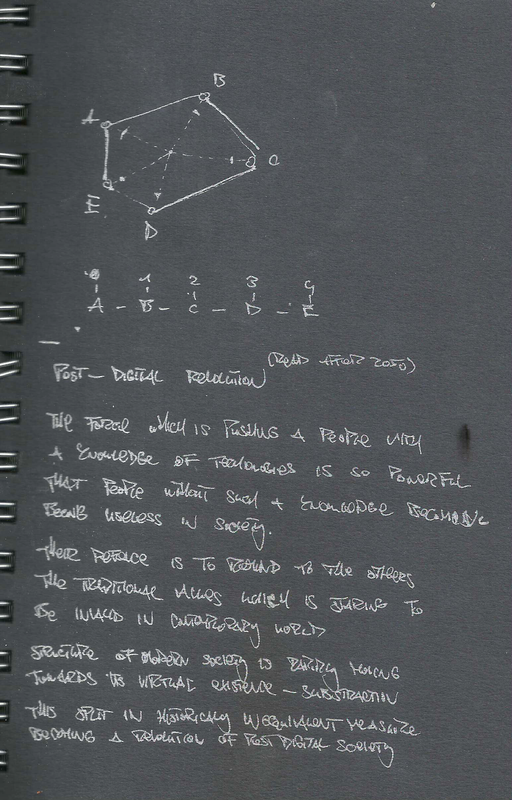 B
A
C
E
D
0 1 2 3 4
A - B - C - D - E
(READ AFTER 2050)
POST - DIGITAL REVOLUTION
THE FORCE WHICH IS PUSHING A PEOPLE WITH
A KNOWLEDGE OF TECHNOLOGIES IS SO POWERFUL
THAT PEOPLE WITHOUT SUCH A KNOWLEDGE BECOMING
BEING USELESS IN SOCIETY.
THEIR DEFENCE IS TO REMIND TO THE OTHERS
THE TRADITIONAL VALUES WHICH IS STARING TO
BE INVALID IN CONTEMPORARY WORLD
STRUCTURE OF MODERN SOCIETY IS RAPIDLY MOVING
TOWARDS ITS VIRTUAL EXISTENCE - SUBSTRACTION
THIS SPLIT IN HISTORICALY UNEQUIVALENT MEASURE
BECOMING A REVOLUTION OF POST DIGITAL SOCIETY